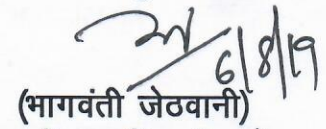 6/8/19
(भागवंती जेठवानी)